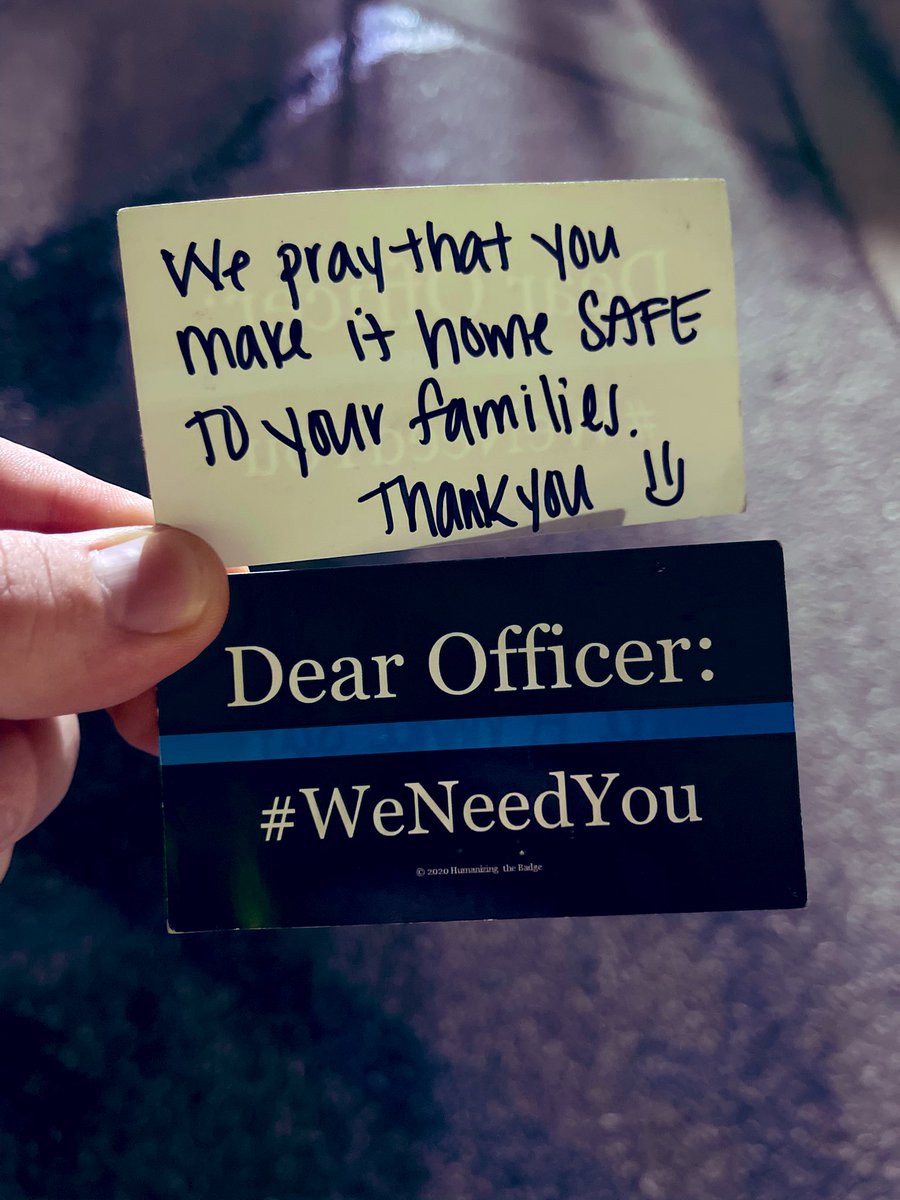 We pray that you
make it home SAFE
TO your families.
Thank you
Dear Officer:
#WeNeedYou
© 2020 Humanizing the Badge